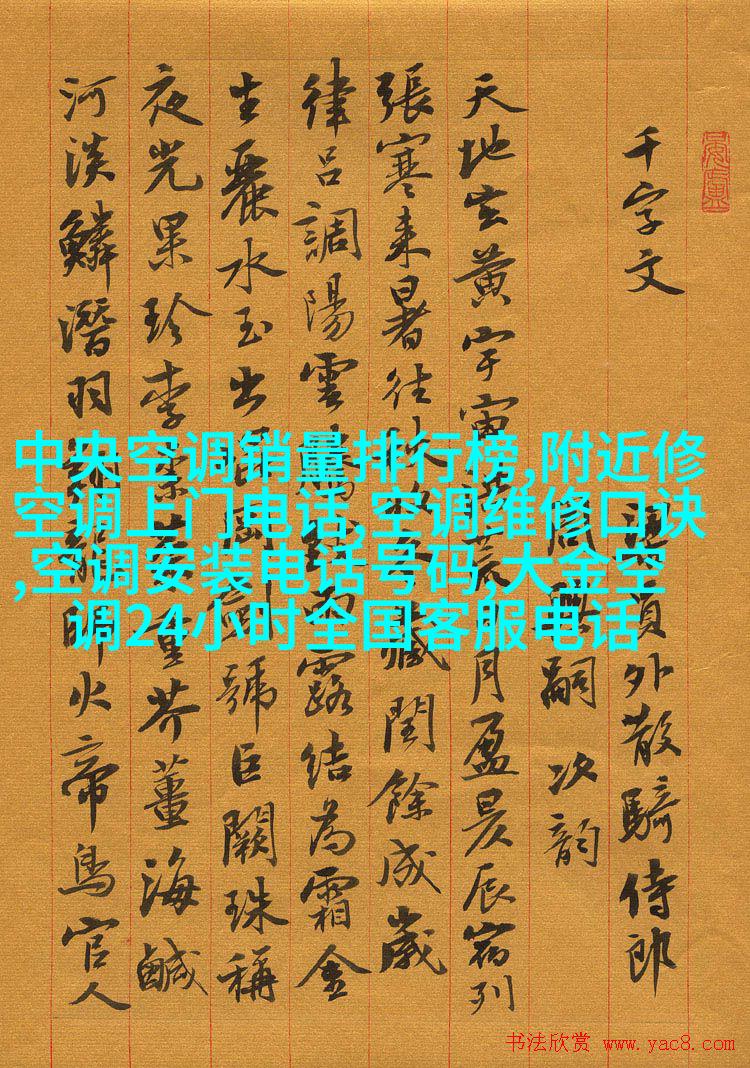 千字文
梁員外散騎侍郎
周興嗣次韵
天地玄黃宇宙洪荒日月盈昃辰宿列
張寒来暑往秋收冬藏閏餘成歲
律呂調陽雲騰致雨露結為霜金
生麗水玉出崑岡劍號巨闕珠稱
夜光果珍李柰菜重芥薑海鹹
河淡鱗潛羽翔龍師火帝鳥官人
中央空调销量排行榜,附近修
空调上门电话,空调维修口诀
,空调安装电话号码,大金空
调24小时全国客服电话
书法欣赏 www.yac8.com